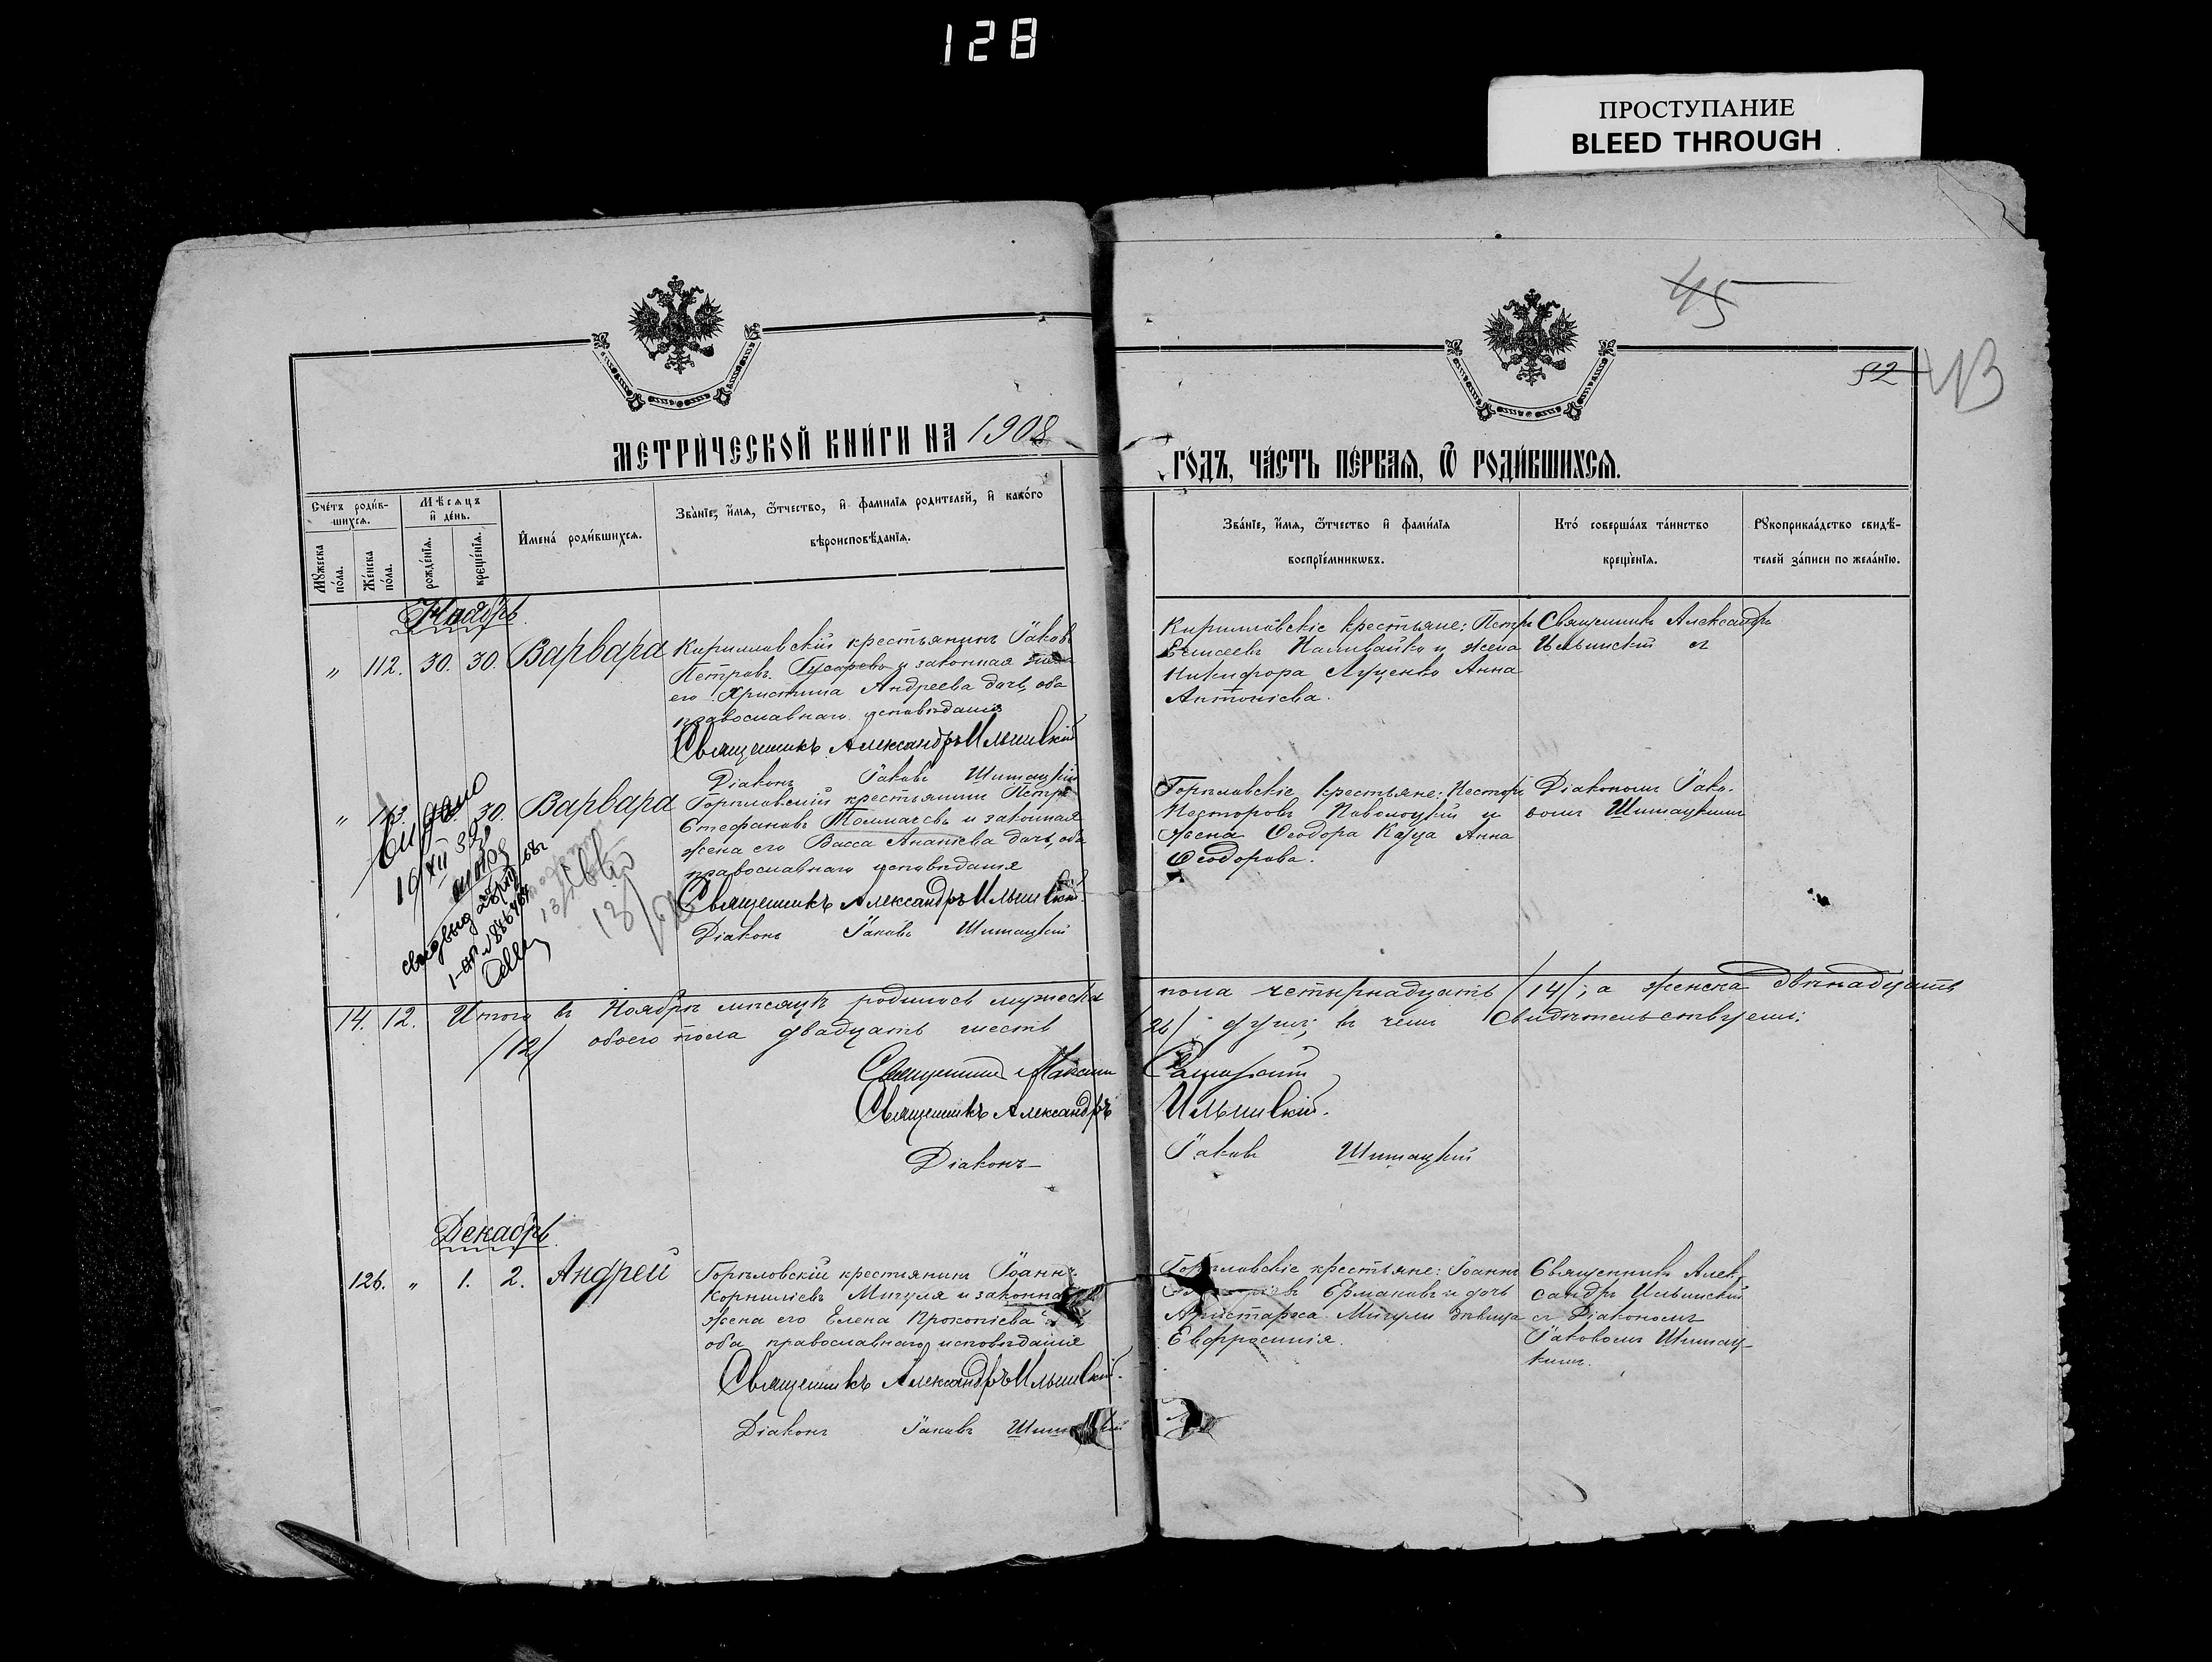 128
ПРОСТУПАНИЕ
BLEED THROUGH
45
52
43
МЕТРИ́ЧЕСКОЙ КНИ́ГИ НА 1908
ГО́ДЪ, ЧА́СТЬ ПЕ́РВАЯ, Ѿ РОДИ́ВШИХСЯ.
Сче́тъ роди́в-
шихся.
Мѣсяцъ
и҆ де́нь.
Мꙋжеска
по́ла.
Же́нска
по́ла.
рожде́нїя.
креще́нїя.
И҆мена́ роди́вшихся.
Зва́нїе, и҆́мя, ѻ҆́тчество, и҆ фамилїя родителей, и҆ како́го
вѣроисповѣ́данїя.
Зва́нїе, и҆́мя, ѻ҆́тчество и҆ фами́лїя
воспрїе́мникѡвъ.
Кто́ соверша́лъ та́инство
креще́нїя.
Рꙋкоприкла́дство свидѣ́-
телей за́писи по жела́нїю.
Ноябрь.
" 112. 30. 30. Варвара
Кирилловскій крестьянинъ Іаковъ
Петровъ Гусаревъ и законная жена
его Христина Андреева дочь, оба
православнаго исповѣданія
Священникъ Александръ Ильинскій
Діаконъ Іаковъ Шитацкій
Кирилловскіе крестьяне: Петръ
Елисеевъ Наливайко и жена
Никифора Луценко Анна
Антоніева.
Священникъ Александръ
Ильинскій съ
" 113. 30. Варвара
Горѣловскій крестьянинъ Петръ
Стефановъ Толмачевъ и законная
жена его Васса Ананіева дочь, оба
православнаго исповѣданія
Священникъ Александръ Ильинскій.
Діаконъ Іаковъ Шитацкій
Горѣловскіе крестьяне: Несторъ
Несторовъ Поволоцкій и
жена Ѳеодора Кацуа Анна
Ѳеодорова.
Діакономъ Іако-
вомъ Шитацкимъ
19 XII 39
14. 12. Итого въ Ноябрѣ мѣсяцѣ родилось мужеска пола четырнадцать /14/; а женска двѣнадцать
/12/ обоего пола двадцать шесть /26/ душъ; въ чемъ свидѣтельствуемъ:
Священникъ Максимъ
Священникъ Александръ Ильинскій.
Діаконъ Іаковъ Шитацкій
Декабрь.
126. " 1. 2. Андрей
Горѣловскій крестьянинъ Іоаннъ
Корниліевъ Мигуля и законная
жена его Елена Прокопіева
оба православнаго исповѣданія
Священникъ Александръ Ильинскій.
Діаконъ Іаковъ
Горѣловскіе крестьяне: Іоаннъ
Ермаковъ и дочь
Аристарха Мигули дѣвица
Евфросинія.
Священникъ Алек-
сандръ Ильинскій
съ Діакономъ
Іаковомъ Шитац-
кимъ.